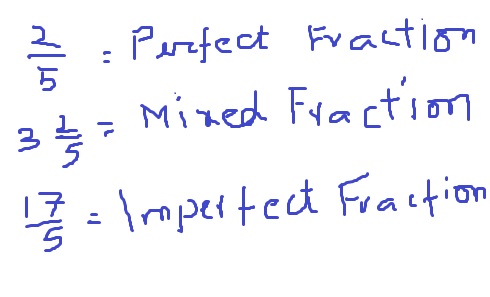 2/5 = Perfect Fraction
3 2/5 = Mixed Fraction
17/5 = Imperfect Fraction